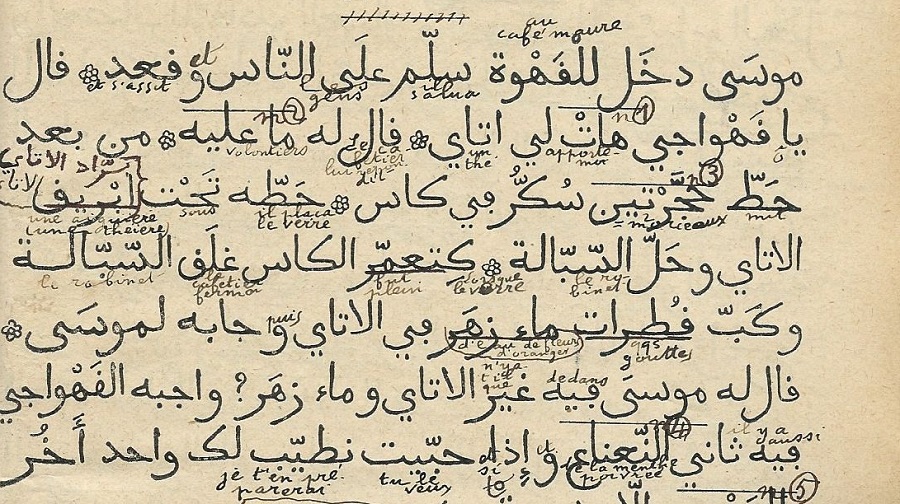 au
café maure
موسَى دخَل للفَهْوة سلّم علَى النّاس وفعد ❀ فال
et
et s'assit
gens
il
salua
n°2
n°1
يا فَهْواجي هاتْ لي اتاي ❀ فال له ما عليه ❀ من بعد
volontiers
le ca
fetier
lui répon
dit
un
thé
apporte-
moi
n°3
برّاد الاتاي
حطّ حْجَرْتين سُكّرْ في كاس ❀ حَطّه تَحْت ابْريف
une aiguière
(une théière)
sous
il plaça
le verre
= 2 morceaux
mit
الاتاي وحَلّ السّبّالة ❀ كتعمّر الكاس غلَف السّبّالة
le robinet
le
cafetier
ferma
fut
plein
lorsque
le verre
le ro-
binet
وكَبّ فُطرات ماء زهَر في الاتاي وجابه لموسَى ❀
puis
d'eau de fleurs
d'oranger
qqs
gouttes
فال له موسَى فيه غير الاتاي وماء زهَر؟ واجبه الفَهْواجي
n'y a
t-il
que
dedans
n°4
فيه ثاني النّعناع وإذا حبّيت نطيّب لك واحد أخُر
il y a
aussi
de la menthe
poivrée
et
si
tu le
veux
je t'en pré-
parerai
n°5